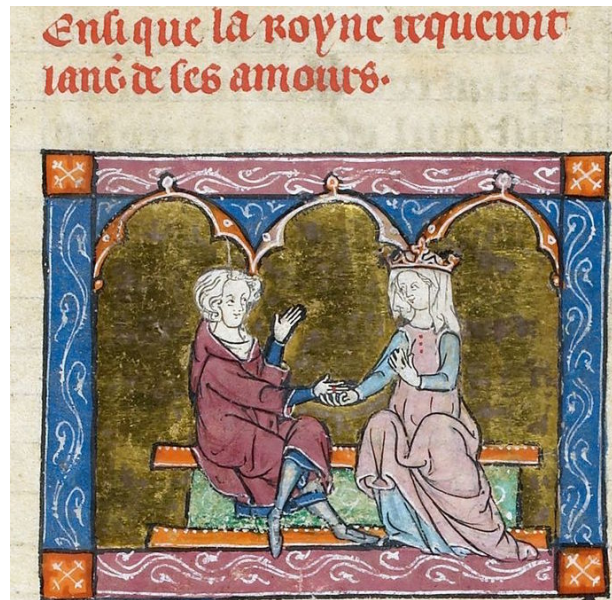 Ensi que la royne requeroit
lanc̃. de ses amours.